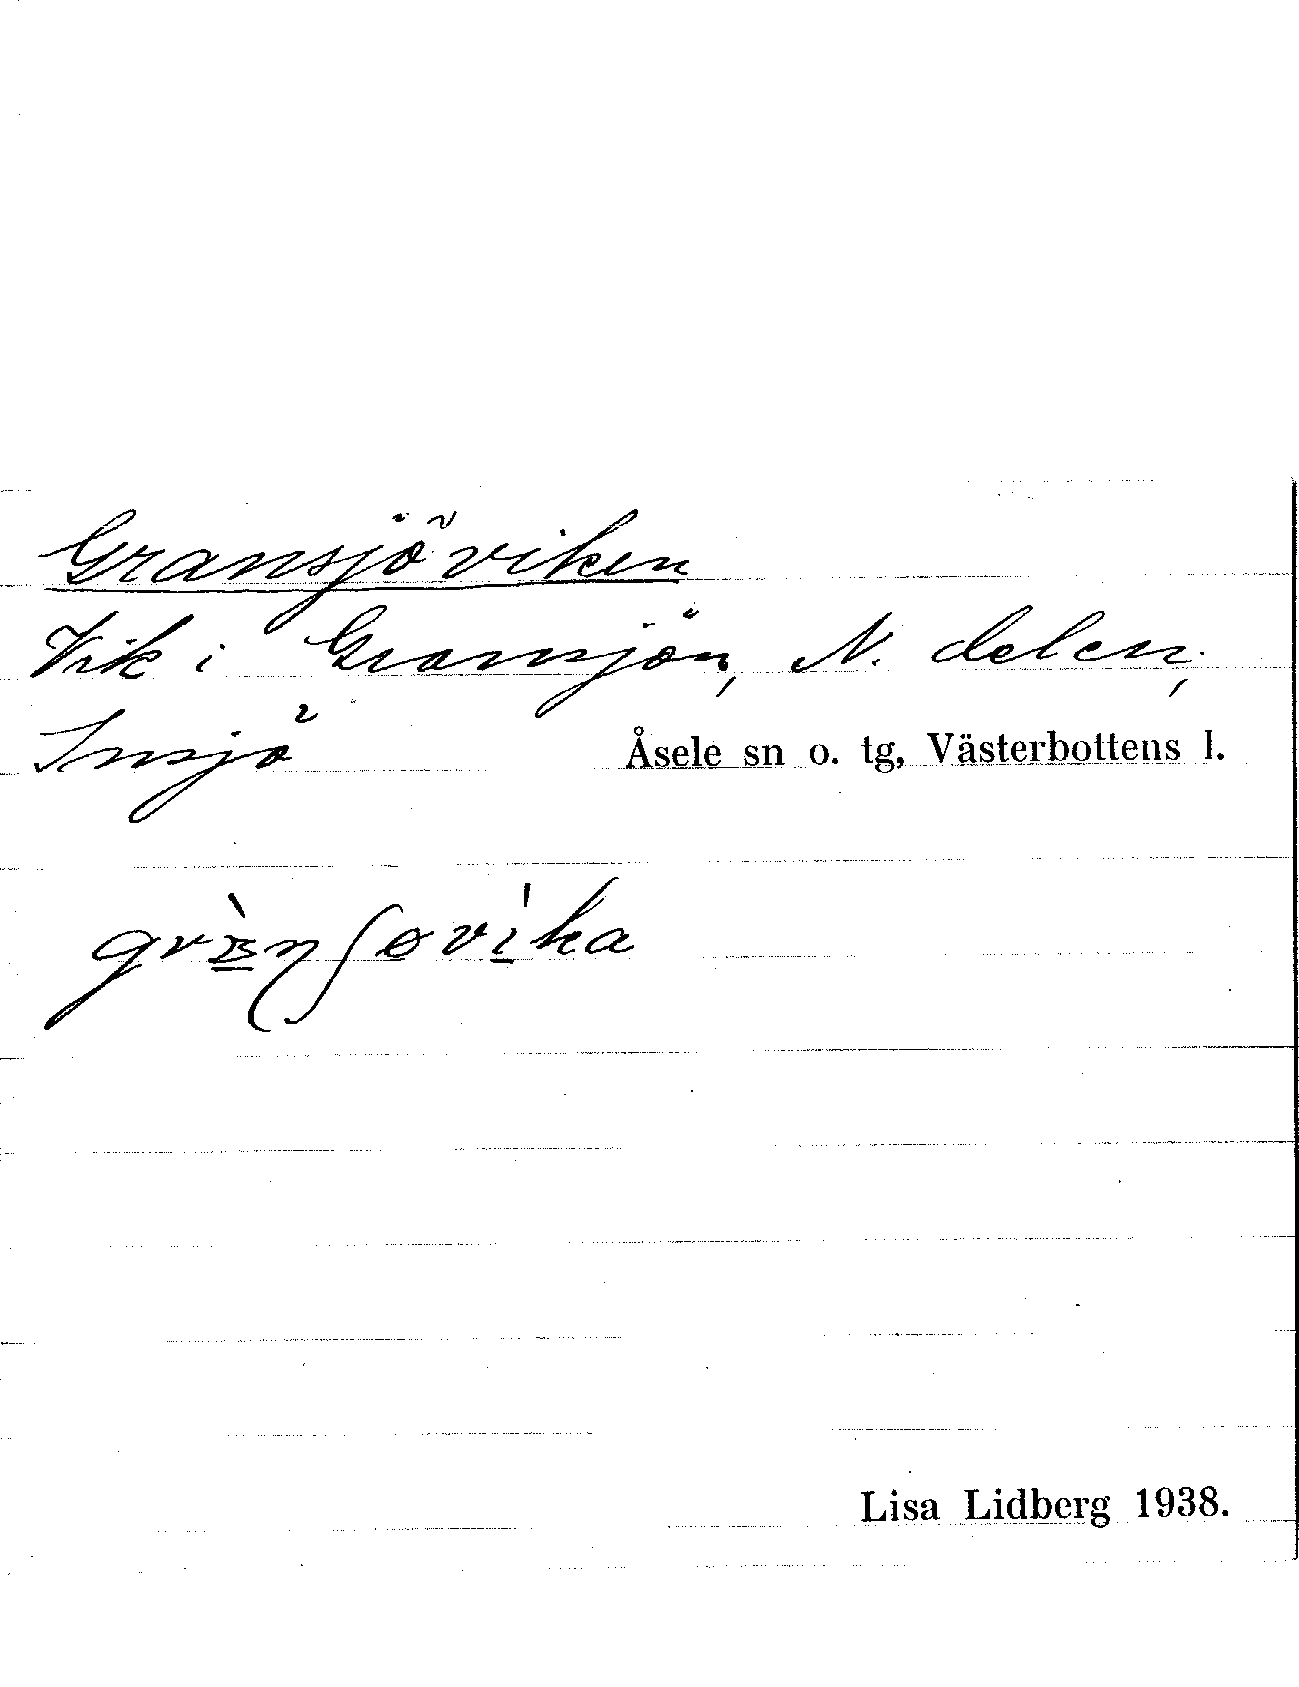 Gransjöviken
Vik i Gransjön, N. delen,
Insjö Åsele sn o. tg, Västerbottens l.
Lisa Lidberg 1938.